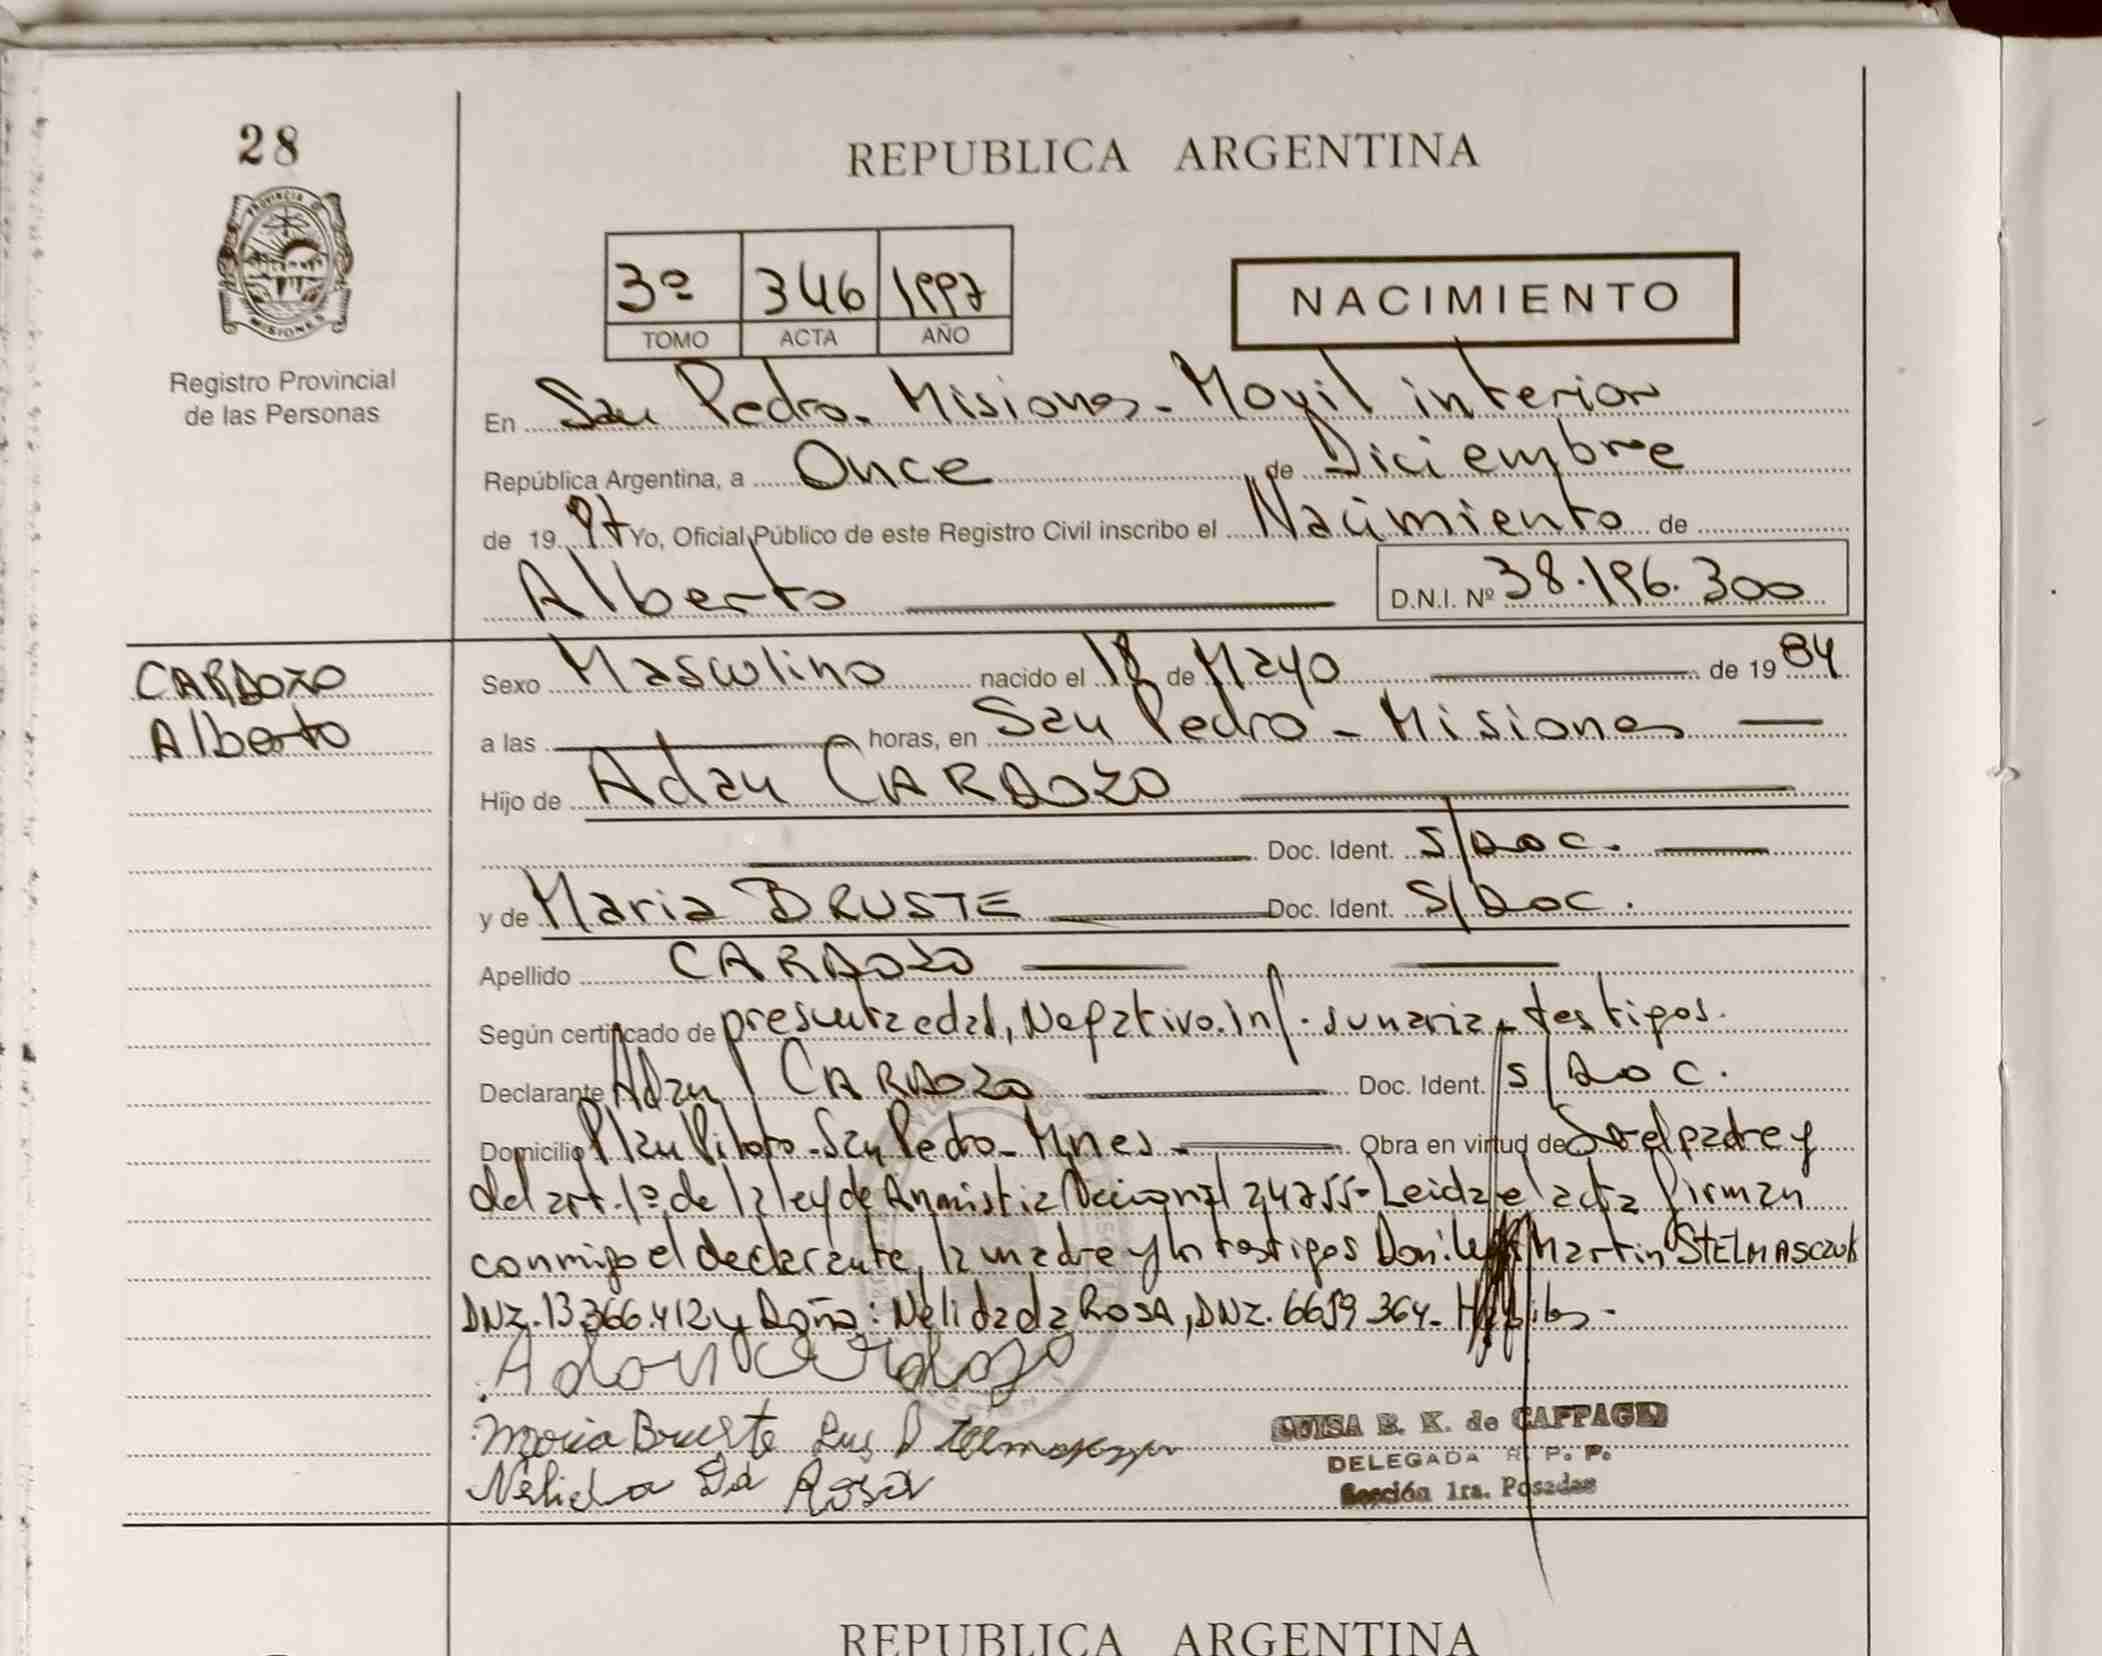 28
PROVINCIA D
MISIONES
Registro Provincial
de las Personas
REPUBLICA ARGENTINA
3º 346 1997
TOMO ACTA AÑO
NACIMIENTO
En San Pedro - Misiones - Movil interior
República Argentina, a Once de Diciembre
de 19 97 Yo, Oficial Público de este Registro Civil inscribo el Nacimiento de
Alberto D.N.I. Nº 38.196.300
CARDOZO
Alberto
Sexo Masculino nacido el 18 de Mayo de 19 84
a las horas, en San Pedro - Misiones
Hijo de Adan CARDOZO
Doc. Ident. S/Doc.
y de Maria BRUSTE Doc. Ident. S/Doc.
Apellido CARDOZO
Según certificado de presunta edad, Negativo. Inf. sumaria - testigos.
Declarante Adan CARDOZO Doc. Ident. S/Doc.
Domicilio Plan Piloto - San Pedro - Mnes - Obra en virtud de Ser el padre y
del art. 1º de la ley de Anmistia Nacional 24755 - Leida el acta firman
conmigo el declarante, la madre y los testigos Don: Martin STELMASCZUK
DNI. 13.366.412 y Doña: Nelida da ROSA, DNI. 6659.364 -
Adan Cardozo
Maria Bruste Luis
Nelida Da Rosa
LUISA B. K. de CAFFAGNI
DELEGADA R. P. P.
Sección 1ra. Posadas
REPUBLICA ARGENTINA